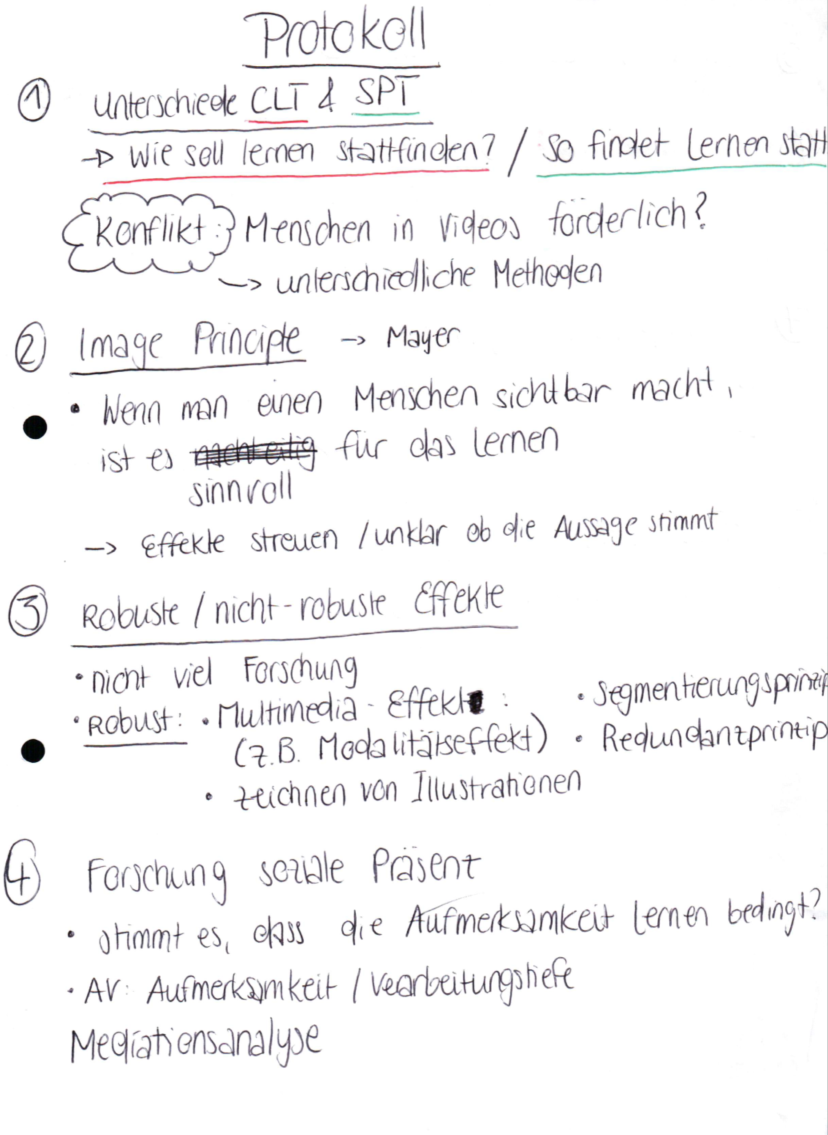 Protokoll
① Unterschiede CLT & SPT
→ Wie soll lernen stattfinden? / So findet Lernen statt
Konflikt: Menschen in Videos förderlich?
→ unterschiedliche Methoden
② Image Principle → Mayer
• Wenn man einen Menschen sichtbar macht,
ist es nachteilig für das lernen
sinnvoll
→ Effekte streuen / unklar ob die Aussage stimmt
③ Robuste / nicht-robuste Effekte
• nicht viel Forschung
• Robust: • Multimedia-Effekt: • Segmentierungsprinzip
(z.B. Modalitätseffekt) • Redundanzprinzip
• zeichnen von Illustrationen
④ Forschung soziale Präsent
• stimmt es, dass die Aufmerksamkeit lernen bedingt?
• AV: Aufmerksamkeit / Vearbeitungstiefe
Mediationsanalyse